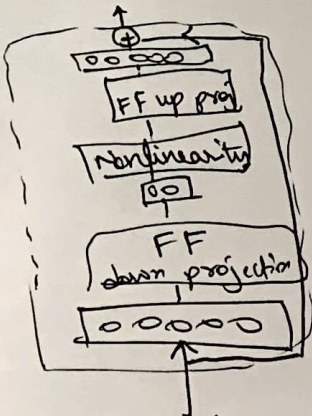 FF up proj
Nonlinearity
FF
down projection